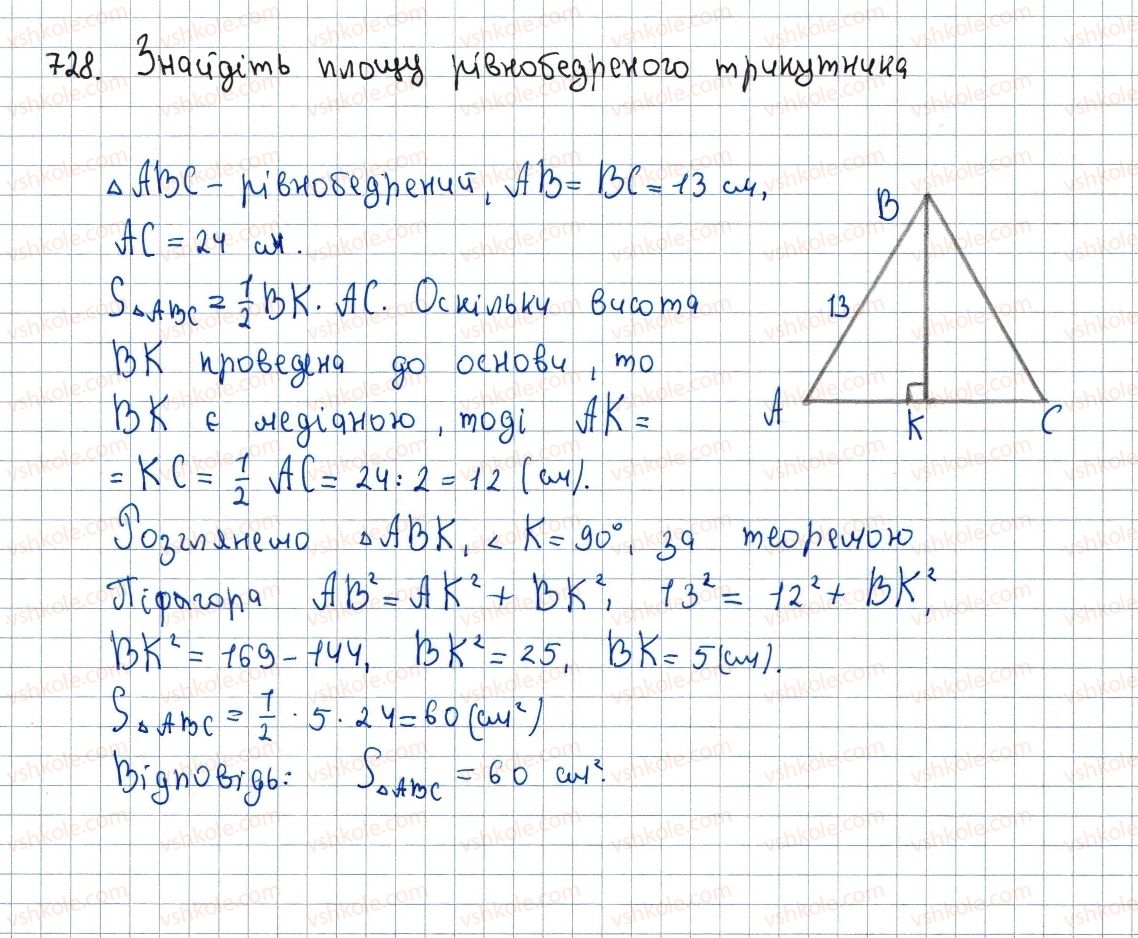 728. Знайдіть площу рівнобедреного трикутника
△ABC – рівнобедрений, AB = BC = 13 см,
AC = 24 см.
S△ABC = 1/2 BK · AC. Оскільки висота
BK проведена до основи, то
BK є медіаною, тоді AK =
= KC = 1/2 AC = 24 : 2 = 12 (см).
Розглянемо △ABK, ∠K = 90°, за теоремою
Піфагора AB² = AK² + BK², 13² = 12² + BK²,
BK² = 169 – 144, BK² = 25, BK = 5 (см).
S△ABC = 1/2 · 5 · 24 = 60 (см²)
Відповідь: S△ABC = 60 см².
B
13
A
K
C
vshkole.com